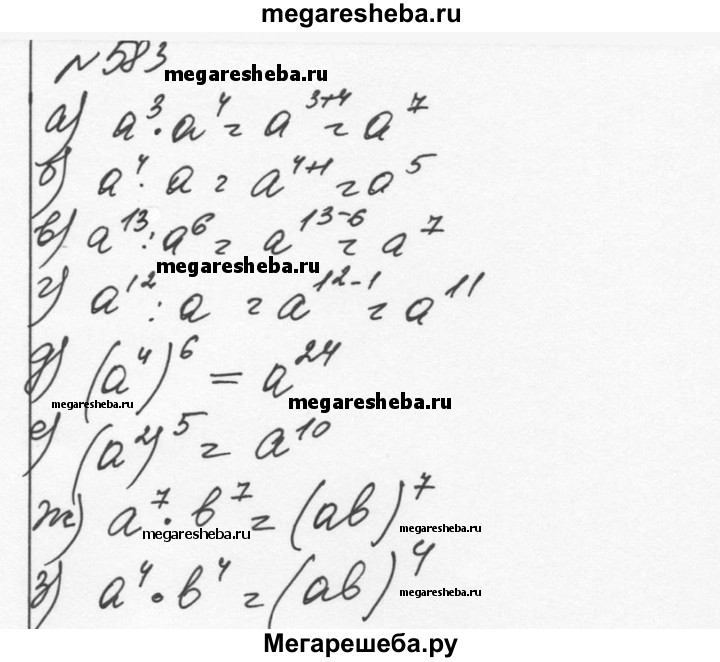 megaresheba.ru
№583
megaresheba.ru
а) a³·a⁴ = a³⁺⁴ = a⁷
б) a⁴·a = a⁴⁺¹ = a⁵
в) a¹³:a⁶ = a¹³⁻⁶ = a⁷
megaresheba.ru
г) a¹²:a = a¹²⁻¹ = a¹¹
д) (a⁴)⁶ = a²⁴
megaresheba.ru megaresheba.ru
е) (a²)⁵ = a¹⁰
ж) a⁷·b⁷ = (ab)⁷
megaresheba.ru megaresheba.ru
з) a⁴·b⁴ = (ab)⁴
megaresheba.ru
Мегарешеба.ру